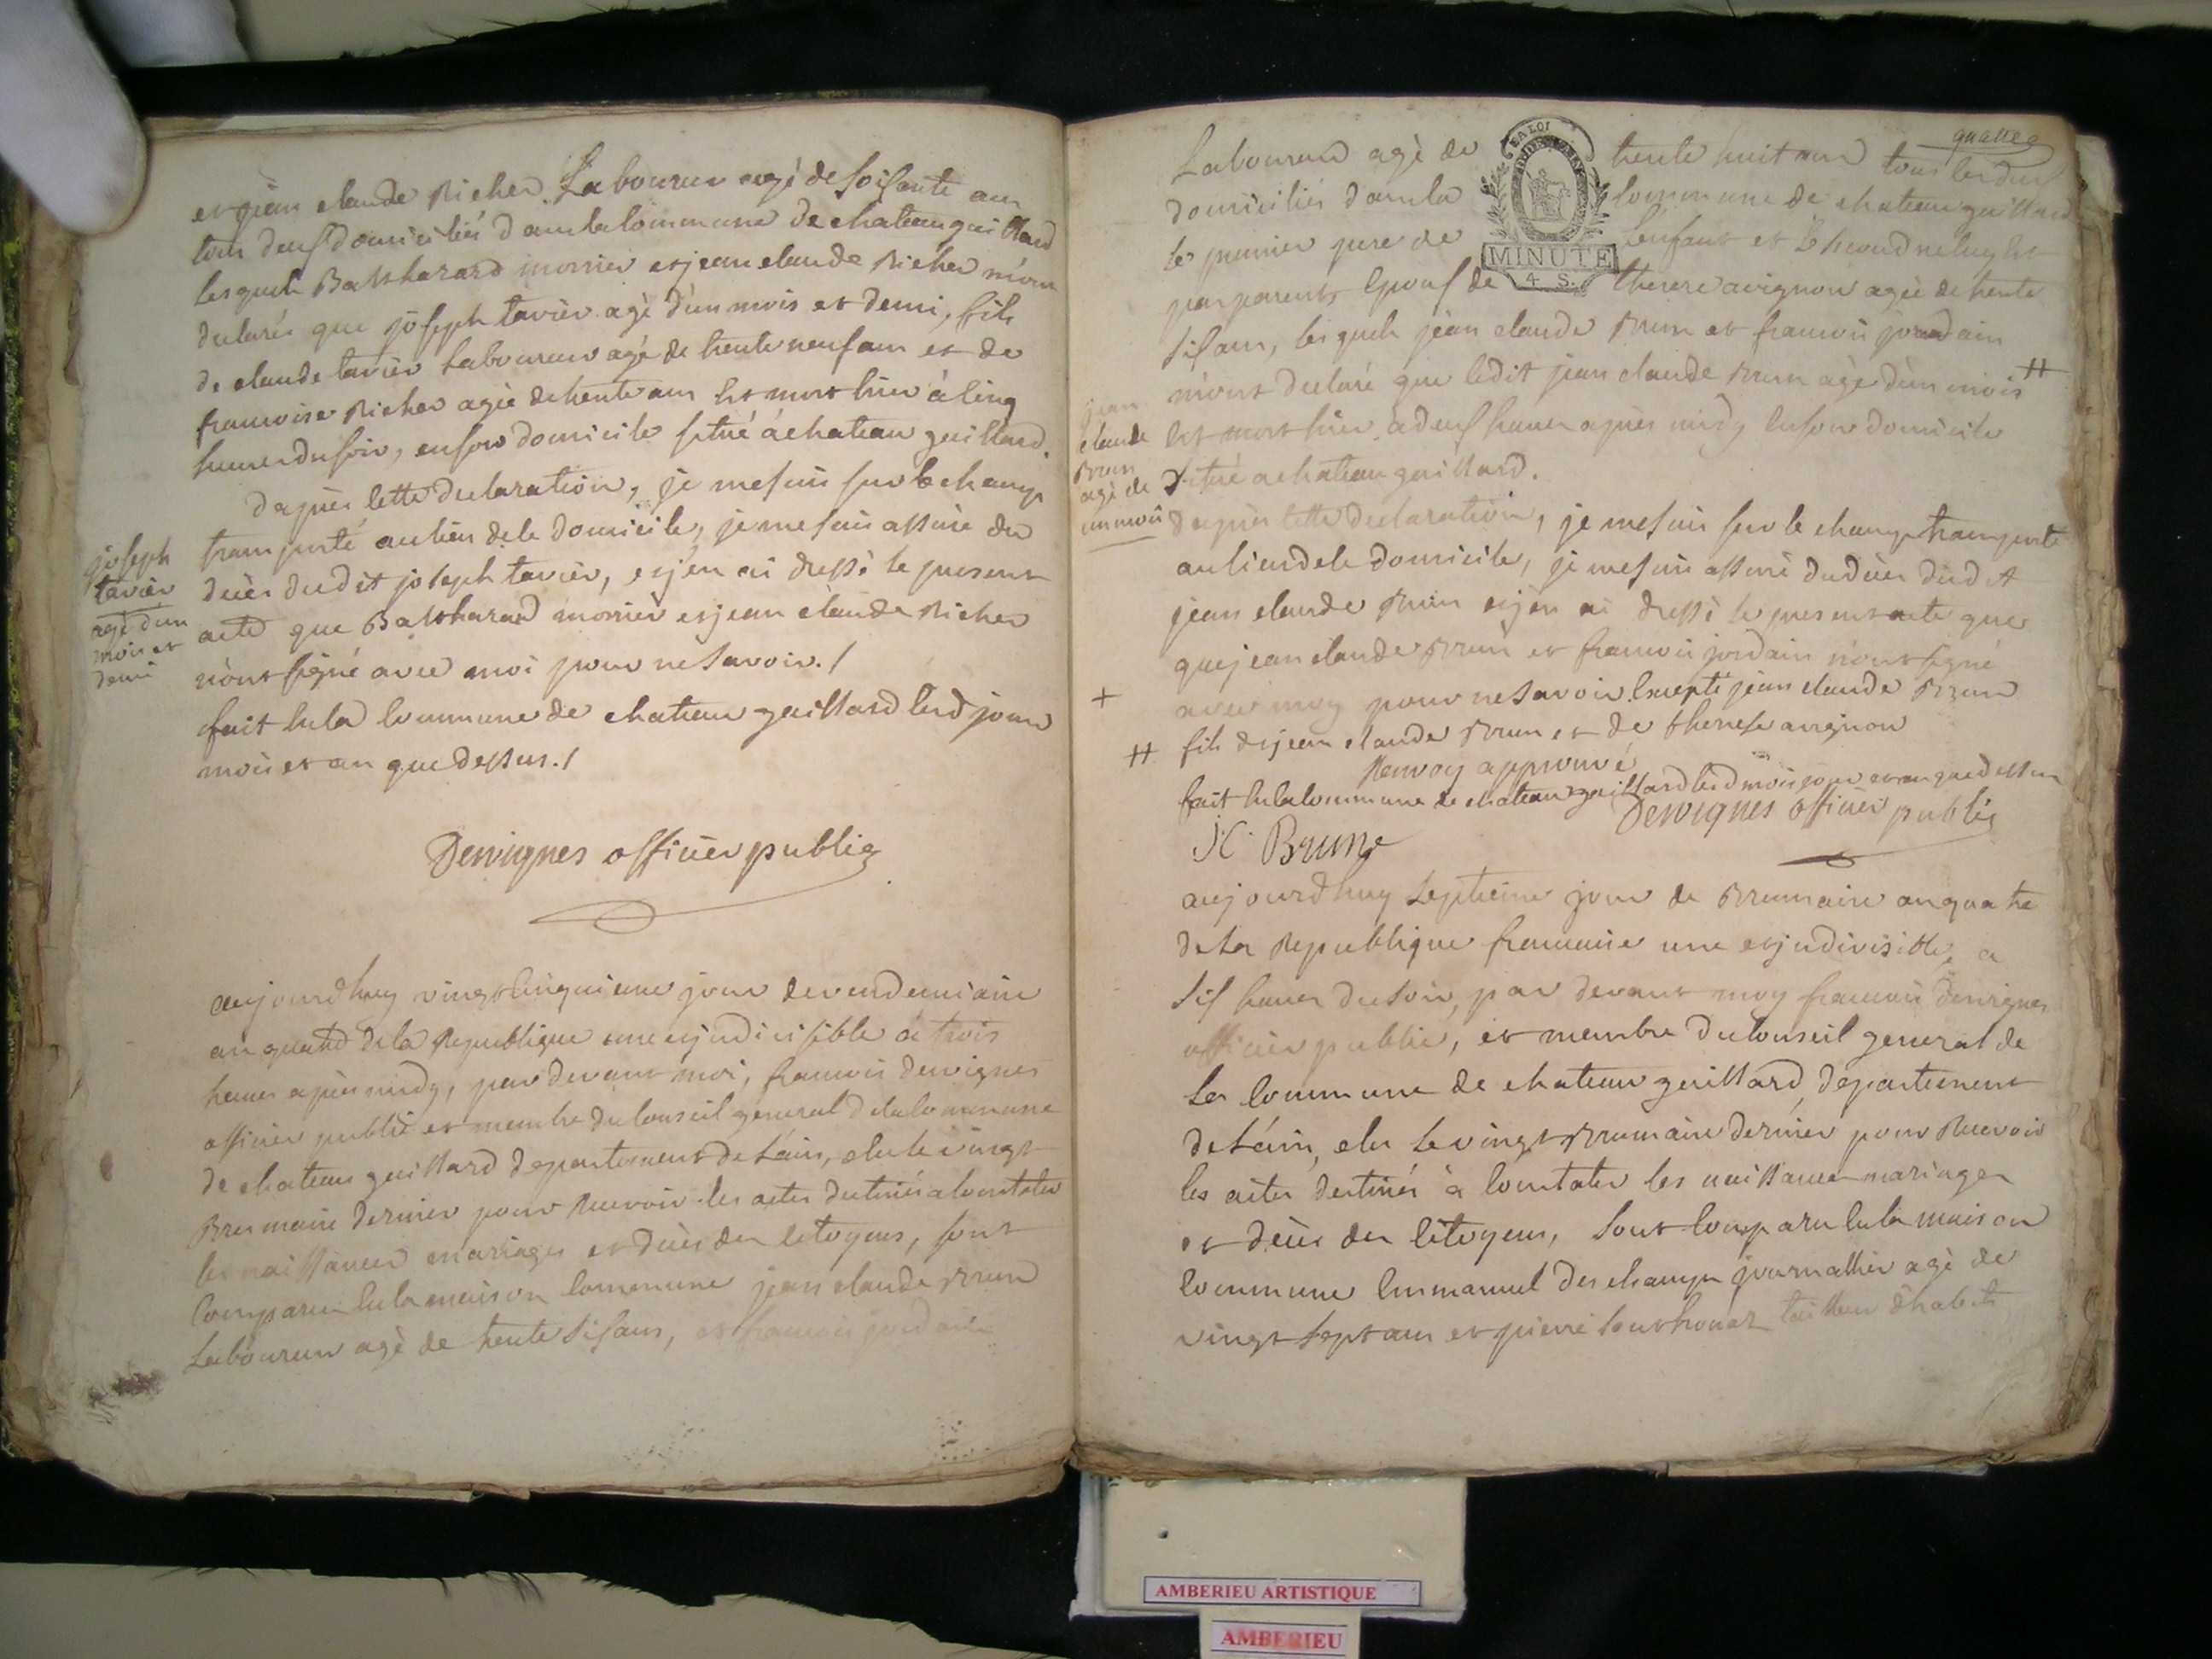 et jean claude Richer Laboureur agé de soisante ans
tous deux domiciliés dans la commune de chateau gaillard
lesquels Balthazard morrier et jean claude Richer m'ont
declarés que joseph tavier agé d'un mois et demi, fils
de claude tavier Laboureur agé de trente neuf ans et de
francoise Richer agée de trente ans est mort hier à cinq
heures du soir, en son domicile situé à chateau gaillard.
D'aprés cette declaration, je me suis sur le champ
transporté au lieu de ce domicile, je me suis assuré du
décès dudit joseph tavier, et j'en ai dressé le present
acte que Balthazard morrier et jean claude Richer
n'ont signé avec moi pour ne savoir./
fait en la commune de chateau gaillard lesd jour
mois et an que dessus./
joseph
tavier
agé d'un
mois et
demi
Dervignes officier public
aujourdhuy vingt cinquieme jour de vendemiaire
an quatre de la Republique une et indivisible à trois
heures après midy, par devant moi, francois dervignes
officier public et membre du conseil general de la commune
de chateau gaillard departement de L'ain, elu le vingt
Brumaire dernier pour recevoir les actes destinés a constater
les naissances mariages et décès des citoyens, sont
comparus en la maison commune jean claude Brun
Laboureur agé de trente six ans, et francois jordain
quatre
Laboureur agé de trente huit ans tous les deux
domiciliés dans la commune de chateau gaillard
le premier pere de l'enfant et le second ne luy est
pas parent, epoux de therese avignon agée de trente
six ans, lesquels jean claude Brun et francois jourdain
m'ont declaré que ledit jean claude Brun agé d'un mois #
est mort hier à deux heures après midy en son domicile
situé a chateau gaillard.
LA LOI
MINUTE
4 S.
jean
claude
Brun
agé de
un mois
d'aprés cette declaration, je me suis sur le champ transporté
au lieu de ce domicile, je me suis assuré du décès dudit
jean claude Brun et j'en ai dressé le present acte que
que jean claude Brun et francois jordain n'ont signé
+ avec moy pour ne savoir excepté jean claude Brun
# fils de jean claude Brun et de therese avignon
Renvoy approuvé
fait en la commune de chateau gaillard lesd mois jour et an que dessus
JC Brun
Dervignes officier public
aujourdhuy septieme jour de Brumaire an quatre
de la Republique francaise une et indivisible, a
six heures du soir, par devant moy francois dervignes
officier public, et membre du conseil general de
la commune de chateau gaillard, departement
de L'ain, elu le vingt Brumaire dernier pour recevoir
les actes destinés à constater les naissances mariages
et décès des citoyens, sont comparu en la maison
commune emmanuel deschamps journallier agé de
vingt sept ans et pierre tailleur d'habits
AMBERIEU ARTISTIQUE
AMBERIEU